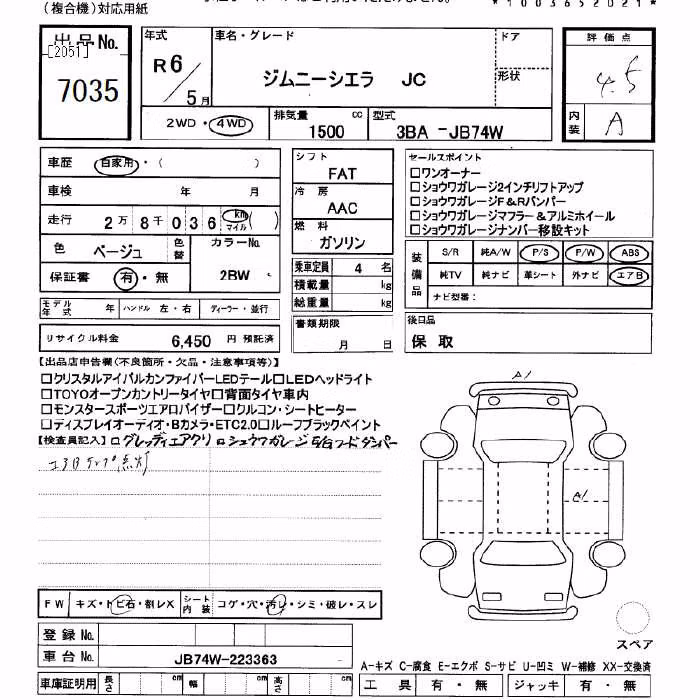 (複合機)対応用紙
*1003652021*
出品No.
[2051]
7035
年式
R6/5月
車名・グレード
ジムニーシエラ JC
ドア
形状
評価点
4.5
内装
A
2WD・4WD
排気量
1500 cc
型式
3BA -JB74W
車歴 自家用・( )
車検 年 月
走行 2万8千036 km マイル ( )
色 ベージュ 色替
カラーNo.
2BW
保証書 有・無
シフト
FAT
冷房
AAC
燃料
ガソリン
乗車定員 4 名
積載量 kg
総重量 kg
書類期限
月 日
セールスポイント
□ワンオーナー
□ショウワガレージ2インチリフトアップ
□ショウワガレージF&Rバンパー
□ショウワガレージマフラー&アルミホイール
□ショウワガレージナンバー移設キット
装備品
S/R 純A/W P/S P/W ABS
純TV 純ナビ 革シート 外ナビ エアB
ナビ型番:
モデル年式 年 ハンドル 左・右 ディーラー・並行
リサイクル料金 6,450 円 預託済
後日品
保 取
【出品店申告欄(不良箇所・欠品・注意事項等)】
□クリスタルアイバルカンファイバーLEDテール□LEDヘッドライト
□TOYOオープンカントリータイヤ□背面タイヤ車内
□モンスタースポーツエアロバイザー□クルコン・シートヒーター
□ディスプレイオーディオ・Bカメラ・ETC2.0□ルーフブラックペイント
【検査員記入】□グレッディエアクリ□ショウワガレージ
エアBランプ点灯
A1
A1
FW キズ・トビ石・割レX
シート内装 コゲ・穴・汚レ・シミ・破レ・スレ
登録No.
車台No. JB74W-223363
スペア
A-キズ C-腐食 E-エクボ S-サビ U-凹ミ W-補修 XX-交換済
車庫証明用 長さ cm 幅 cm 高さ cm
工具 有・無 ジャッキ 有・無